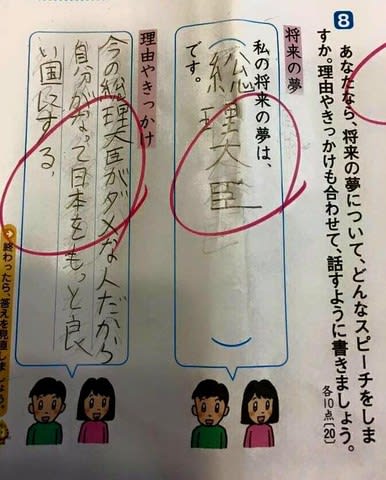 8
あなたなら、将来の夢について、どんなスピーチをしま
すか。理由やきっかけも合わせて、話すように書きましょう。
各10点〔20〕
将来の夢
私の将来の夢は、
（総理大臣）
です。
理由やきっかけ
今の総理大臣がダメな人だから
自分がなって日本をもっと良
い国にする。
終わったら、答えを見直しましょう。